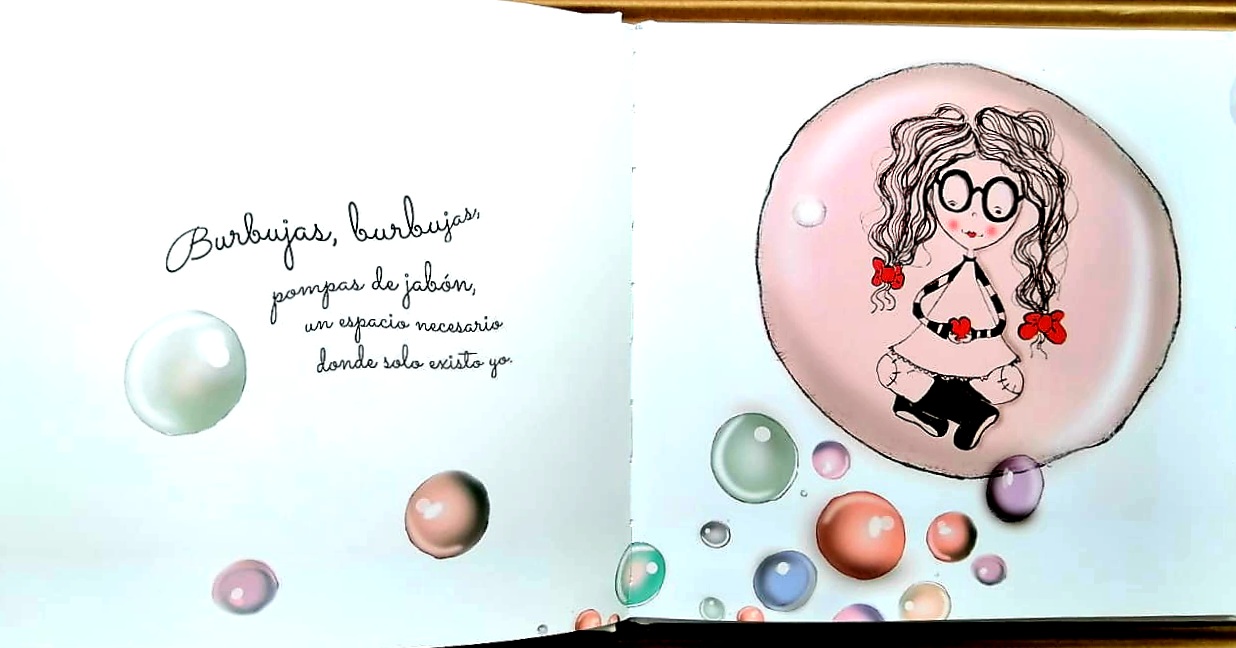 Burbujas, burbujas,
pompas de jabón,
un espacio necesario
donde solo existo yo.